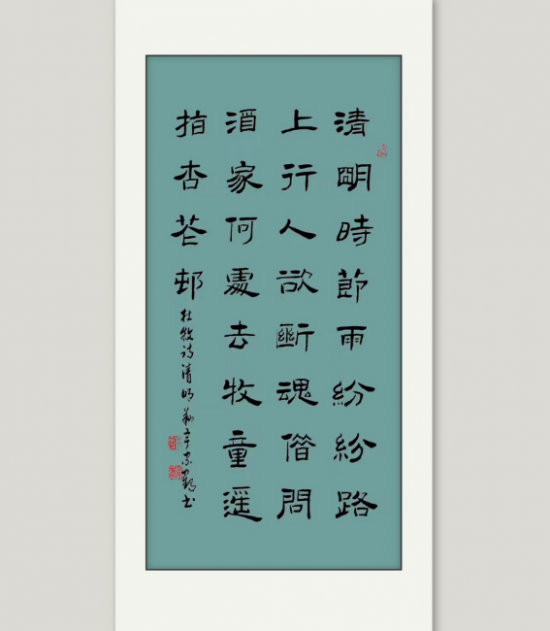 清明時節雨紛紛路
上行人欲斷魂借問
酒家何處去牧童遥
指杏花邨
杜牧诗清明
书